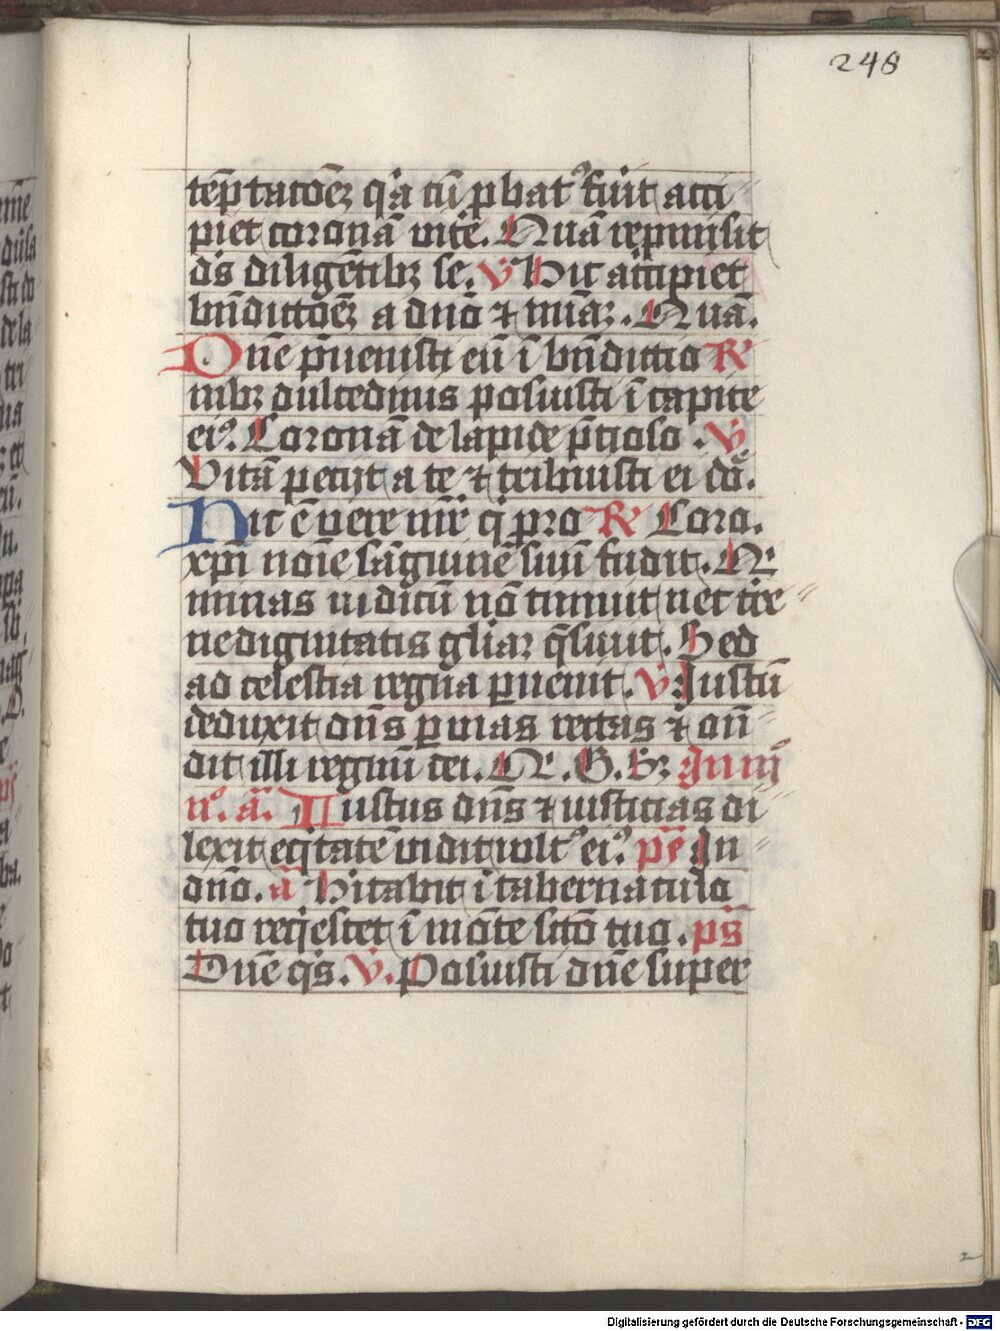 248
tēptac̄oēȝ q'a cū ꝓbat᷒ fu'it acci
piet coronā vite. Quā repmisit
d's diligētibȝ se. V̓ Hic accipiet
bn̄dictōeȝ a dn̄o ⁊ mīaȝ. Quā.
Dn̄e p̄uenisti eū ī bn̄dictio R̓
nibȝ dulcedinis posuisti ī capite
ei᷒. Coronā de lapide p̄cioso. V̓
Vitā petijt a te ⁊ tribuisti ei dn̄.
Hic ē vere mr̄ q' pro R̓ Coro.
xp̄i noīe sāguinē suū fudit. Q'
minas iudicū nō timuit nec t're
ne dignitatis gl'iaȝ q̄siuit. Sed
ad celestia regna ꝑuenit. V̓ Justū
deduxit dn̄s ꝑ vias rectas ⁊ on̄
dit illi regnū dei. Q'. G. B. In iij
n᷒. a᷒. Iustus dn̄s ⁊ iusticias di
lexit eq'tatē vidit vult᷒ ei᷒. ps̄ In
dn̄o. a᷒ H'itabit ī tabernaculo
tuo req'escet ī mōte scto tuo. ps̄
Dn̄e q's. V̓. Posuisti dn̄e super
2
Digitalisierung gefördert durch die Deutsche Forschungsgemeinschaft - DFG